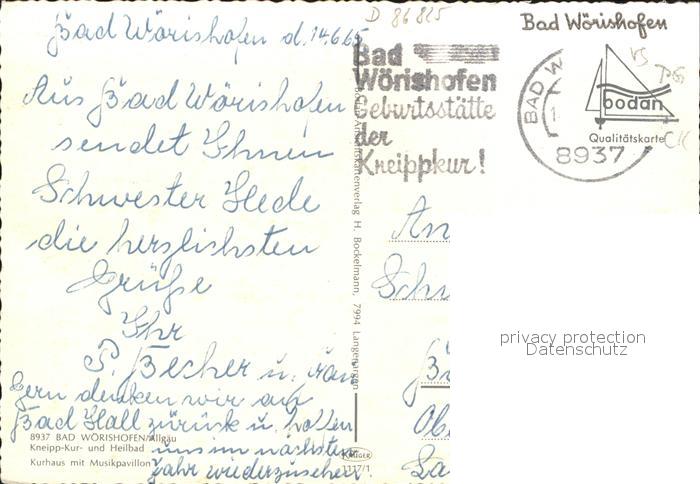 D 86825
Bad Wörishofen
Bad Wörishofen d. 14.6.65
Bad
Wörishofen
Geburtsstätte
der
Kneippkur!
BAD W
8937
bodan
Qualitätskarte
Aus Bad Wörishofen
sendet Ihnen
Schwester Hede
die herzlichsten
Grüße
Ihr
P. Becher u. Frau
Gern denken wir an
Bad Hall zurück u. hoffen
uns im nächsten
Jahr wiederzusehen.
8937 BAD WÖRISHOFEN/Allgäu
Kneipp-Kur- und Heilbad
Kurhaus mit Musikpavillon
Ansichtskartenverlag H. Bockelmann, 7994 Langenargen
KRÜGER
An
Schw
Ob
privacy protection
Datenschutz